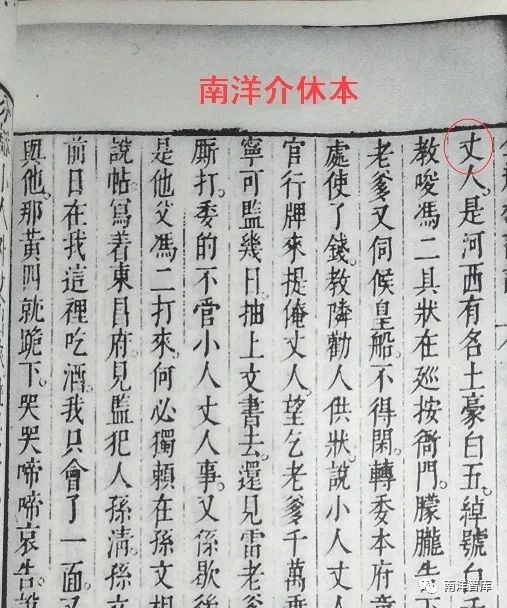 南洋介休本
丈人。是河西有名土豪白五。綽號白
教唆馮二具狀在廵按衙門。朦朧告
老爹又伺候皇船不得閑。轉委本府
處使了錢。教隣勸人供狀。說小人丈人
官行牌來提俺丈人。望乞老爹千萬
寧可監幾日。抽上文書去。還見雷老
厮打。委的不管小人丈人事。又係歇後
是他父馮二打來。何必獨頼在孫文相
說帖。寫着東昌府見監犯人孫清。孫文
前日在我這裡吃酒。我只會了一面。又
與他。那黃四就跪下。哭哭啼啼哀告說
南洋智库